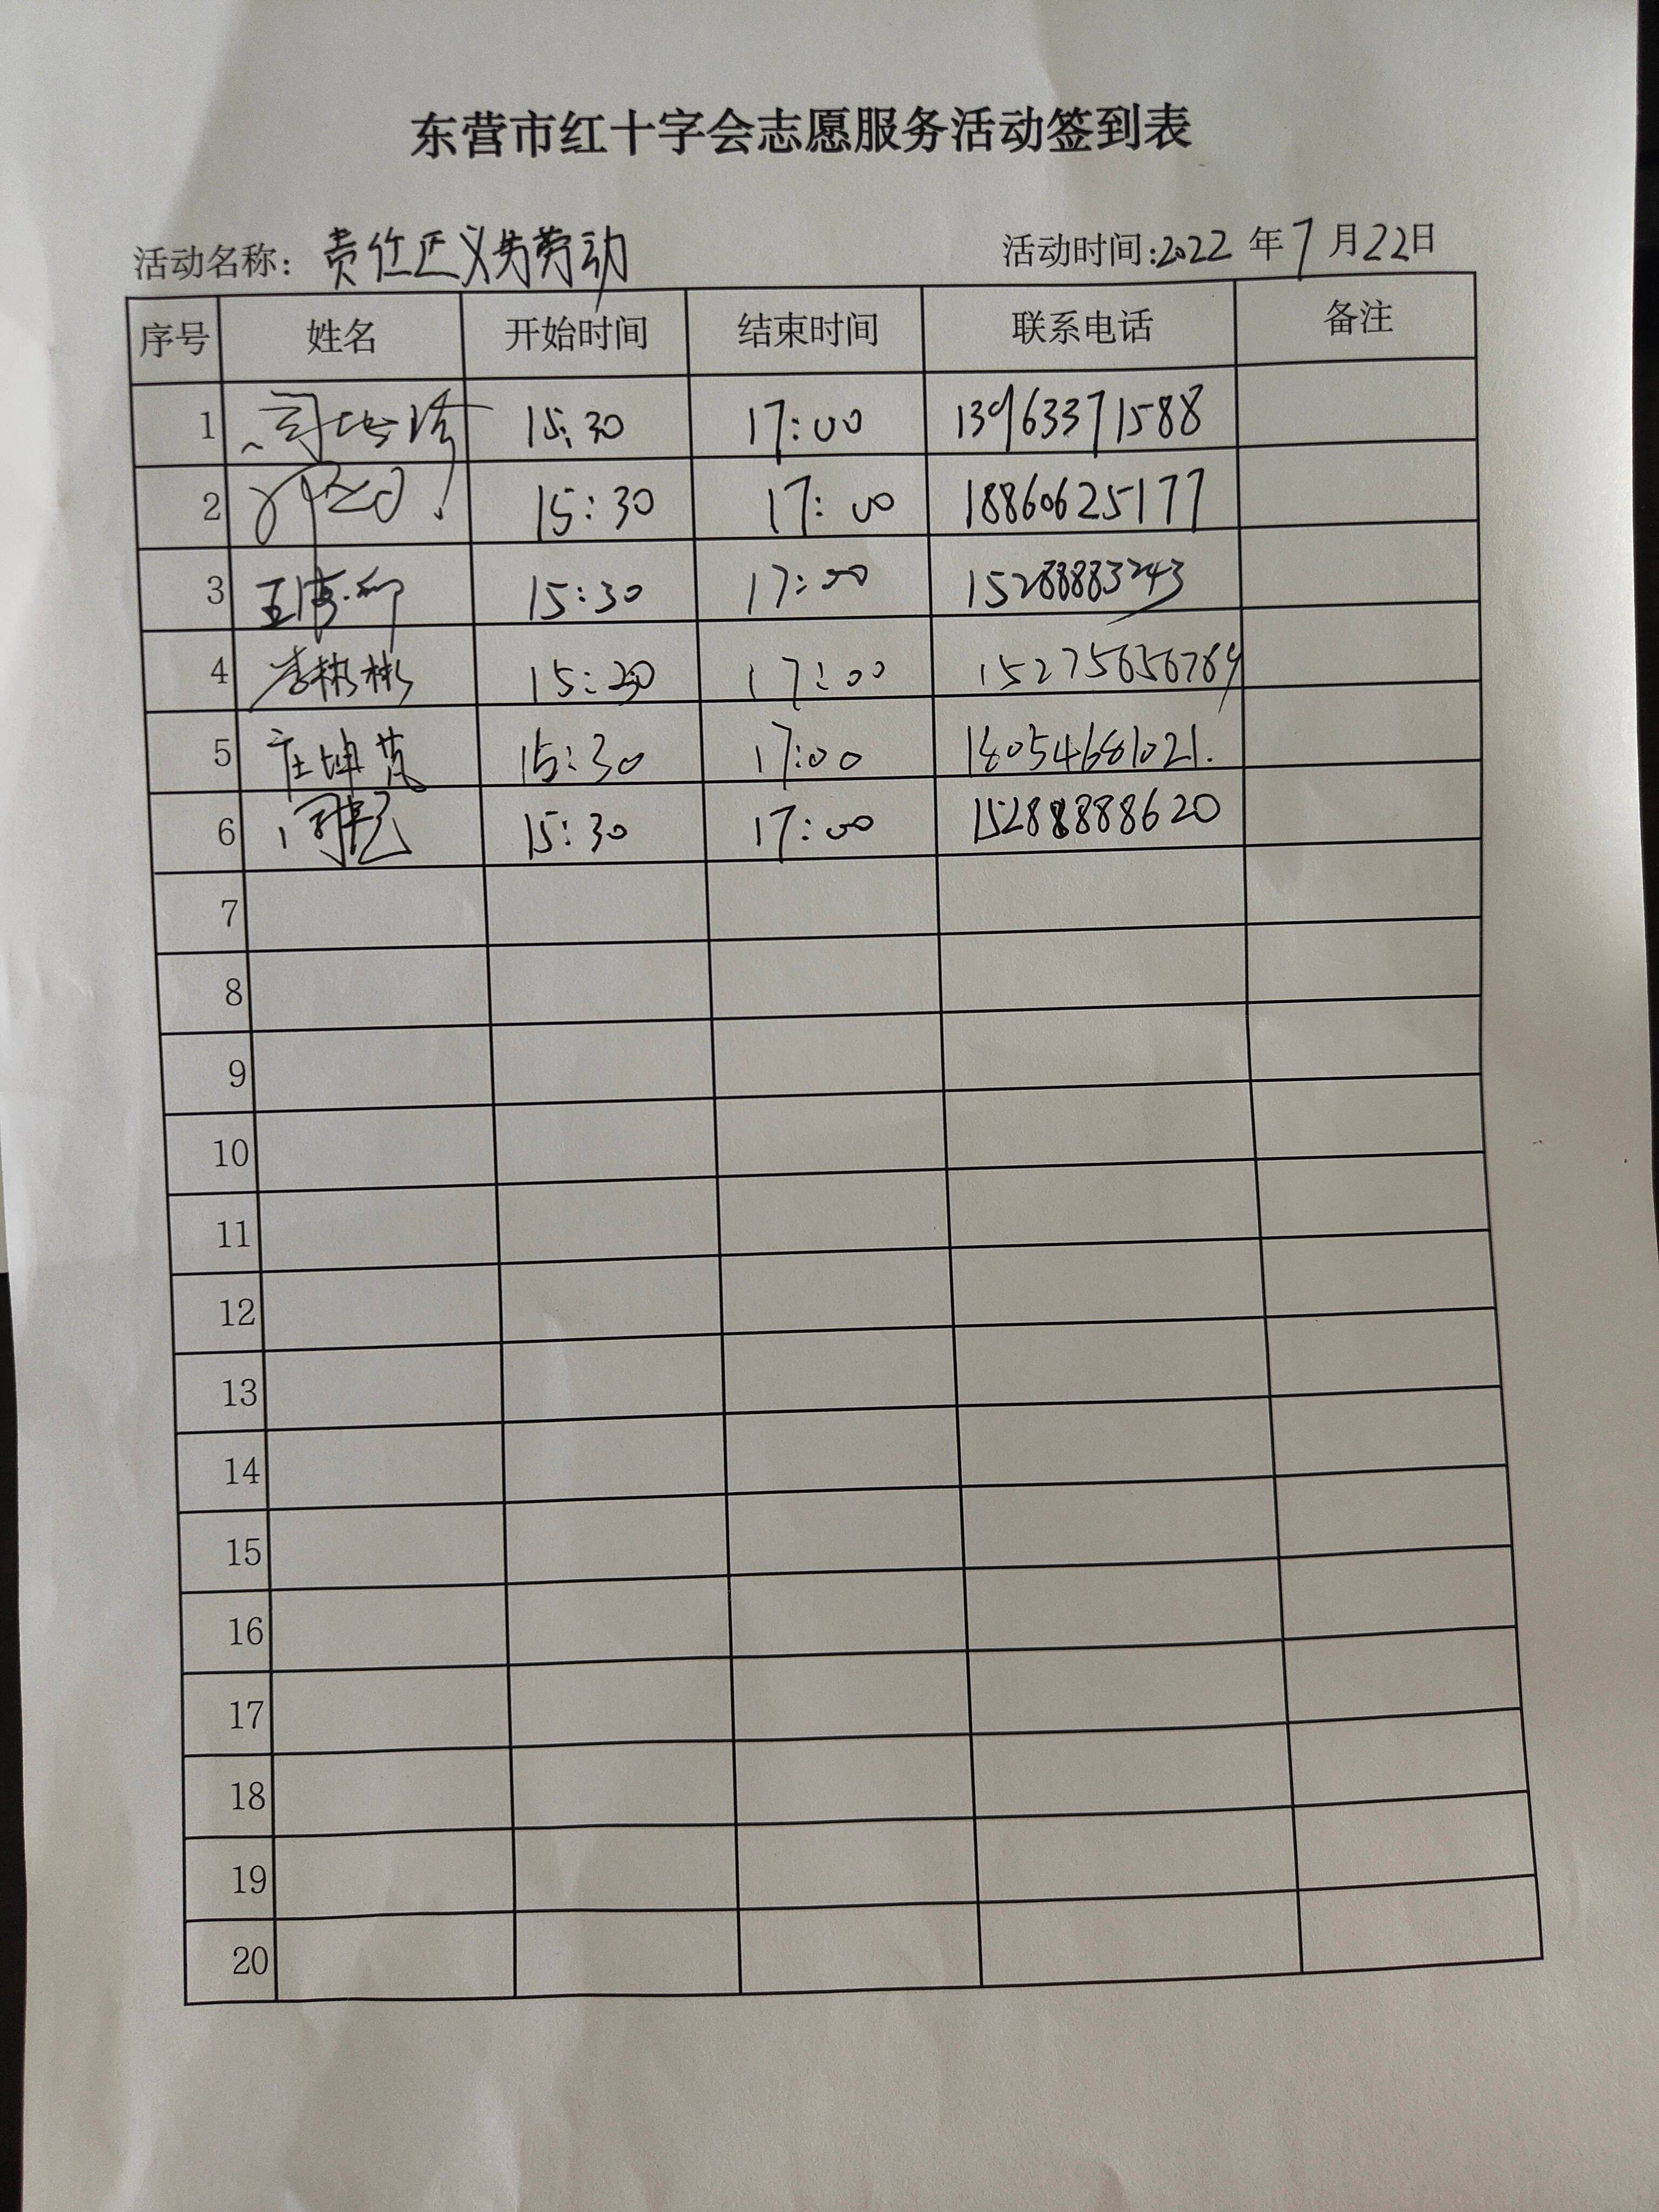 东营市红十字会志愿服务活动签到表
活动名称：责任区义务劳动 活动时间:2022 年 7 月 22日
序号 姓名 开始时间 结束时间 联系电话 备注
1 15:30 17:00 13963371588
2 15:30 17:00 18860625177
3 15:30 17:00 15288883243
4 李彬彬 15:30 17:00 15275656789
5 庄坤芪 15:30 17:00 18054681021.
6 15:30 17:00 15288888620
7
8
9
10
11
12
13
14
15
16
17
18
19
20